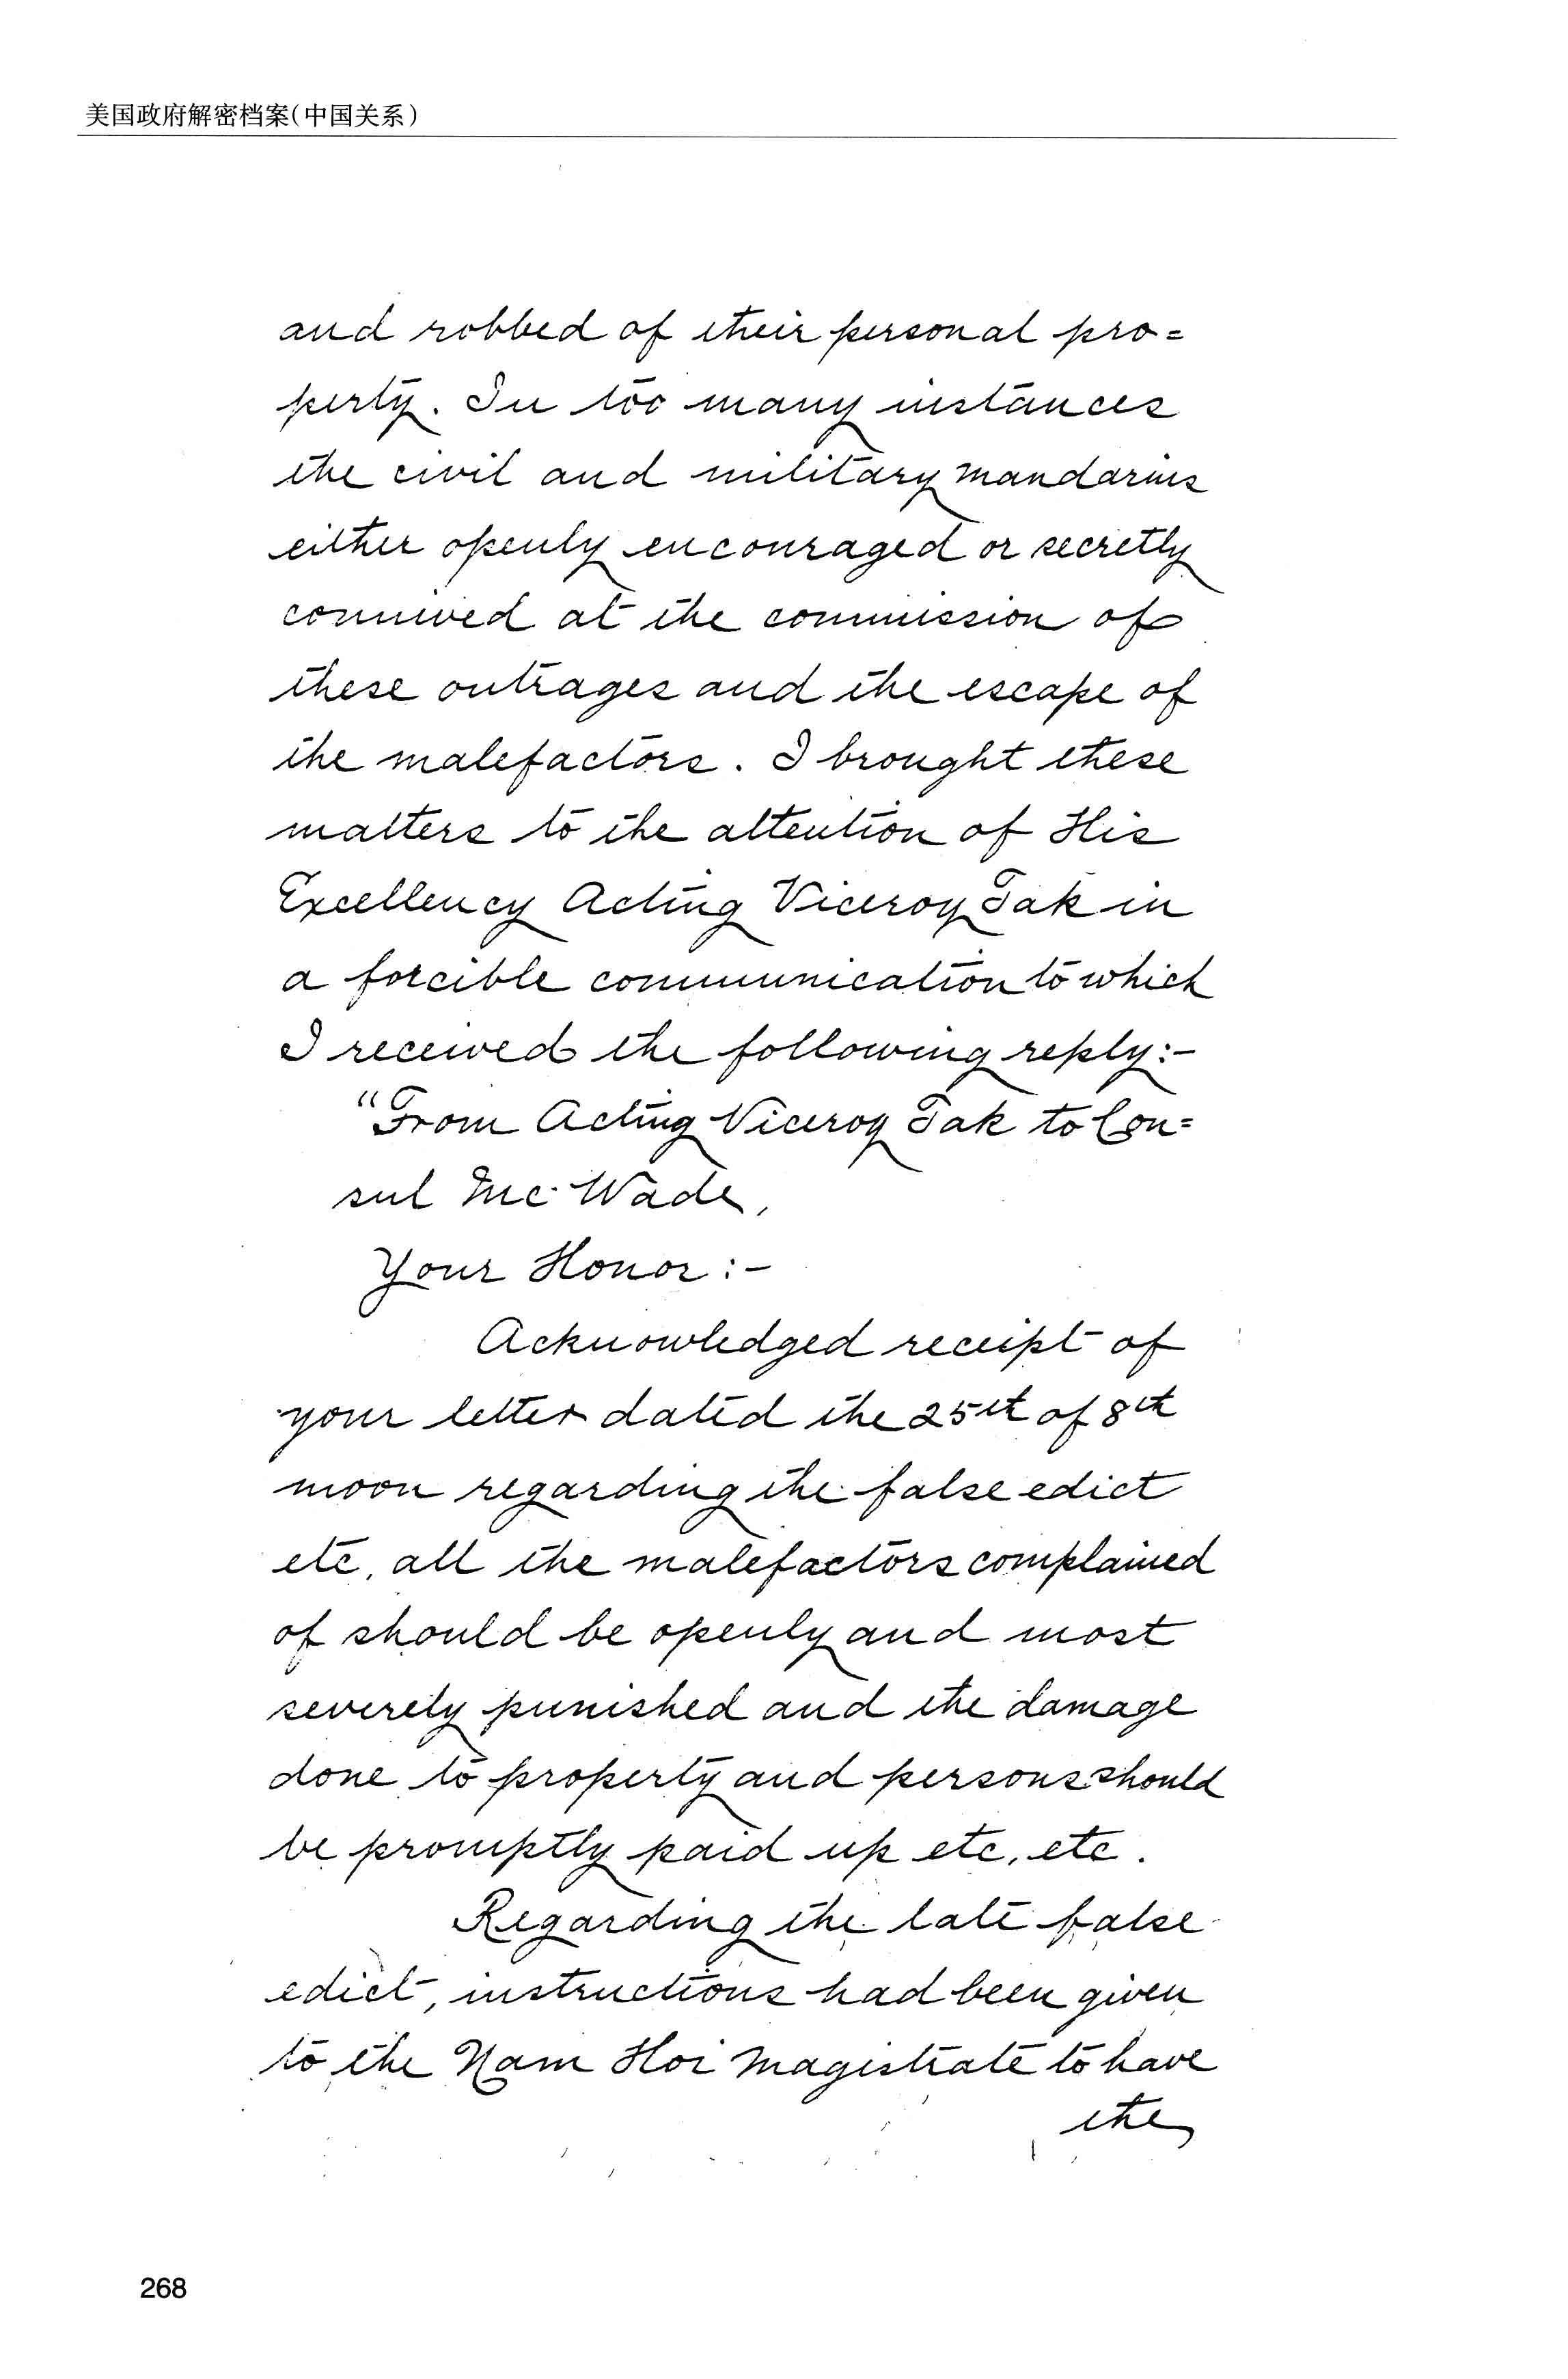 美国政府解密档案(中国关系)
and robbed of their personal pro=
perty. In too many instances
the civil and military mandarins
either openly encouraged or secretly
connived at the commission of
these outrages and the escape of
the malefactors. I brought these
matters to the attention of His
Excellency Acting Viceroy Tak in
a forcible communication to which
I received the following reply:-
"From Acting Viceroy Tak to Con=
sul McWade,
Your Honor:-
Acknowledged receipt of
your letter dated the 25th of 8th
moon regarding the false edict
etc, all the malefactors complained
of should be openly and most
severely punished and the damage
done to property and persons should
be promptly paid up etc, etc.
Regarding the late false
edict, instructions had been given
to the Nam Hoi Magistrate to have
the
268